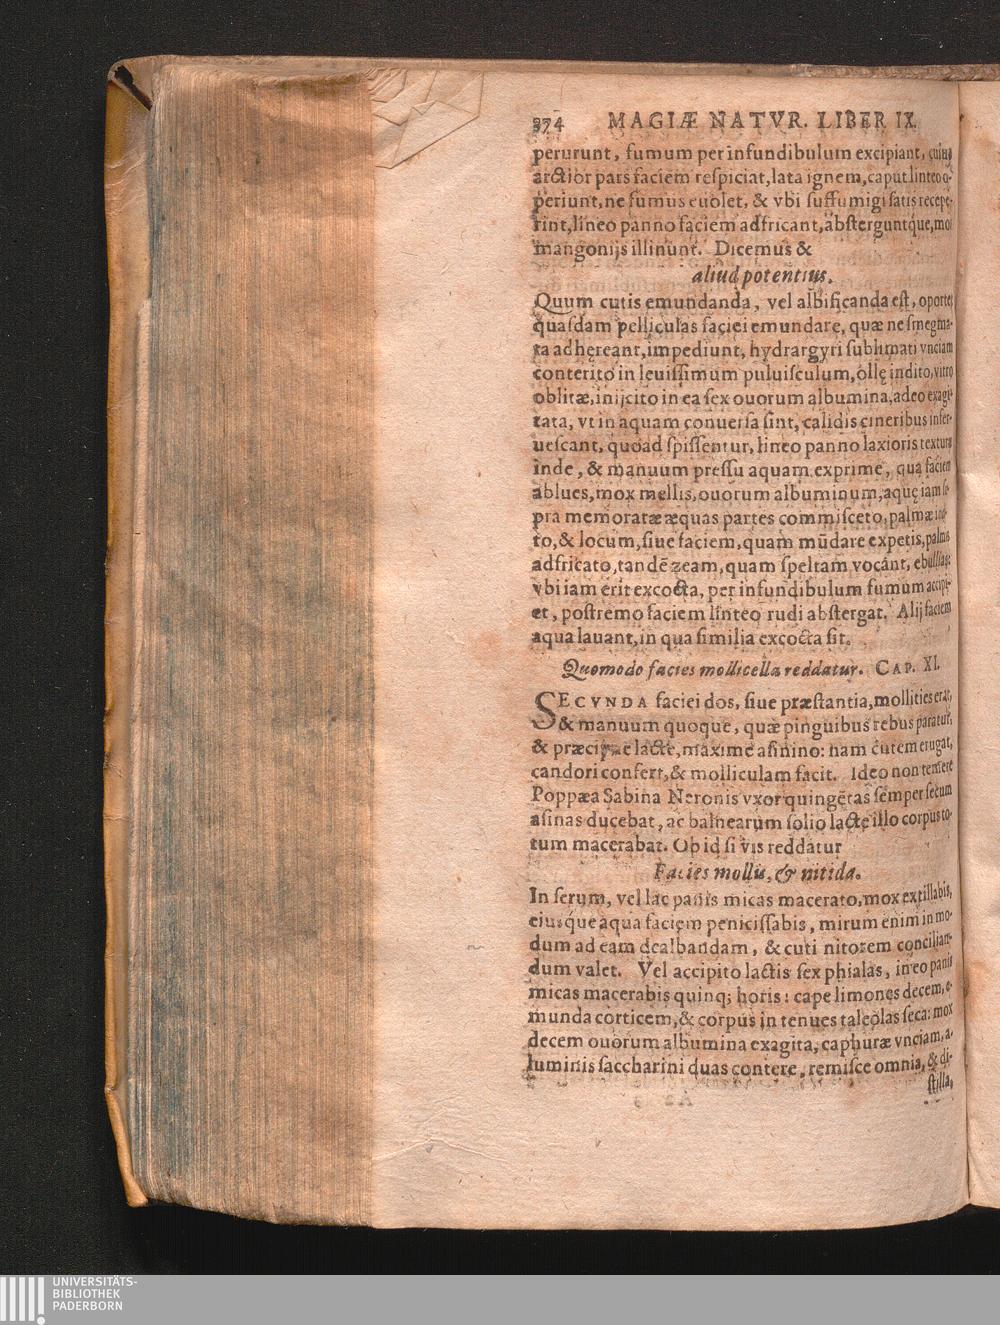 374 MAGIÆ NATVR. LIBER IX.
perurunt, fumum per infundibulum excipiant, cuius
arctior pars faciem reſpiciat, lata ignem, caput linteo o-
periunt, ne fumus euolet, & vbi ſuffumigi ſatis recepe-
rint, lineo panno faciem adfricant, abſterguntq́ue, mox
mangonijs illinunt. Dicemus &
aliud potentius.
Quum cutis emundanda, vel albificanda eſt, oportet
quaſdam pelliculas faciei emundare, quæ ne ſmegma-
ta adhęreant, impediunt, hydrargyri ſublimati vnciam
conterito in leuiſſimum puluiſculum, ollę indito, vitro
oblitæ, inijcito in ea ſex ouorum albumina, adeo exagi-
tata, vt in aquam conuerſa ſint, calidis cineribus infer-
ueſcant, quoad ſpiſſentur, lineo panno laxioris texturæ
inde, & manuum preſſu aquam exprime, qua faciem
ablues, mox mellis, ouorum albuminum, aquę iam ſu-
pra memoratæ æquas partes commiſceto, palmæ
to, & locum, ſiue faciem, quam mūdare expetis, palmis
adfricato, tandē zeam, quam ſpeltam vocant,
vbi iam erit excocta, per infundibulum fumum accipi-
et, poſtremo faciem linteo rudi abſtergat. Alij faciem
aqua lauant, in qua ſimilia excocta ſit.
Quomodo facies mollicella reddatur. CAP. XI.
SECVNDA faciei dos, ſiue præſtantia, mollities erat,
& manuum quoque, quæ pinguibus rebus paratur,
& præcipue lacte, maxime aſinino: nam cutem erugat,
candori confert, & molliculam facit. Ideo non temere
Poppæa Sabina Neronis vxor quingētas ſemper ſecum
aſinas ducebat, ac balnearum ſolio lacte illo corpus to-
tum macerabat. Ob id ſi vis reddatur
Facies mollis, & nitida.
In ſerum, vel lac panis micas macerato, mox extillabis,
eiusq́ue aqua faciem peniciſſabis, mirum enim in mo-
dum ad eam dealbandam, & cuti nitorem concilian-
dum valet. Vel accipito lactis ſex phialas, in eo panis
micas macerabis quinq; horis: cape limones decem, e-
munda corticem, & corpus in tenues taleolas ſeca: mox
decem ouorum albumina exagita, caphuræ vnciam, a-
luminis ſaccharini duas contere, remiſce omnia, & di-
ſtilla,
UNIVERSITÄTS-
BIBLIOTHEK
PADERBORN